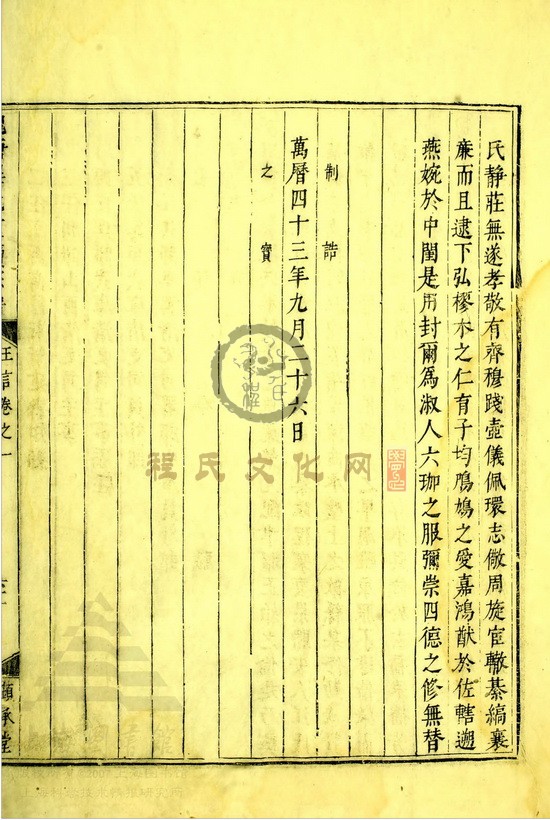 氏靜莊無遂孝敬有齊穆踐壼儀佩環志儆周旋宦轍綦縞襄
廉而且逮下弘樛木之仁育子均鳲鳩之愛嘉鴻猷於佐轄遡
燕婉於中閨是用封爾為淑人六珈之服彌崇四德之修無替
制誥
萬曆四十三年九月二十六日
之寶
王言卷之一
程氏文化网